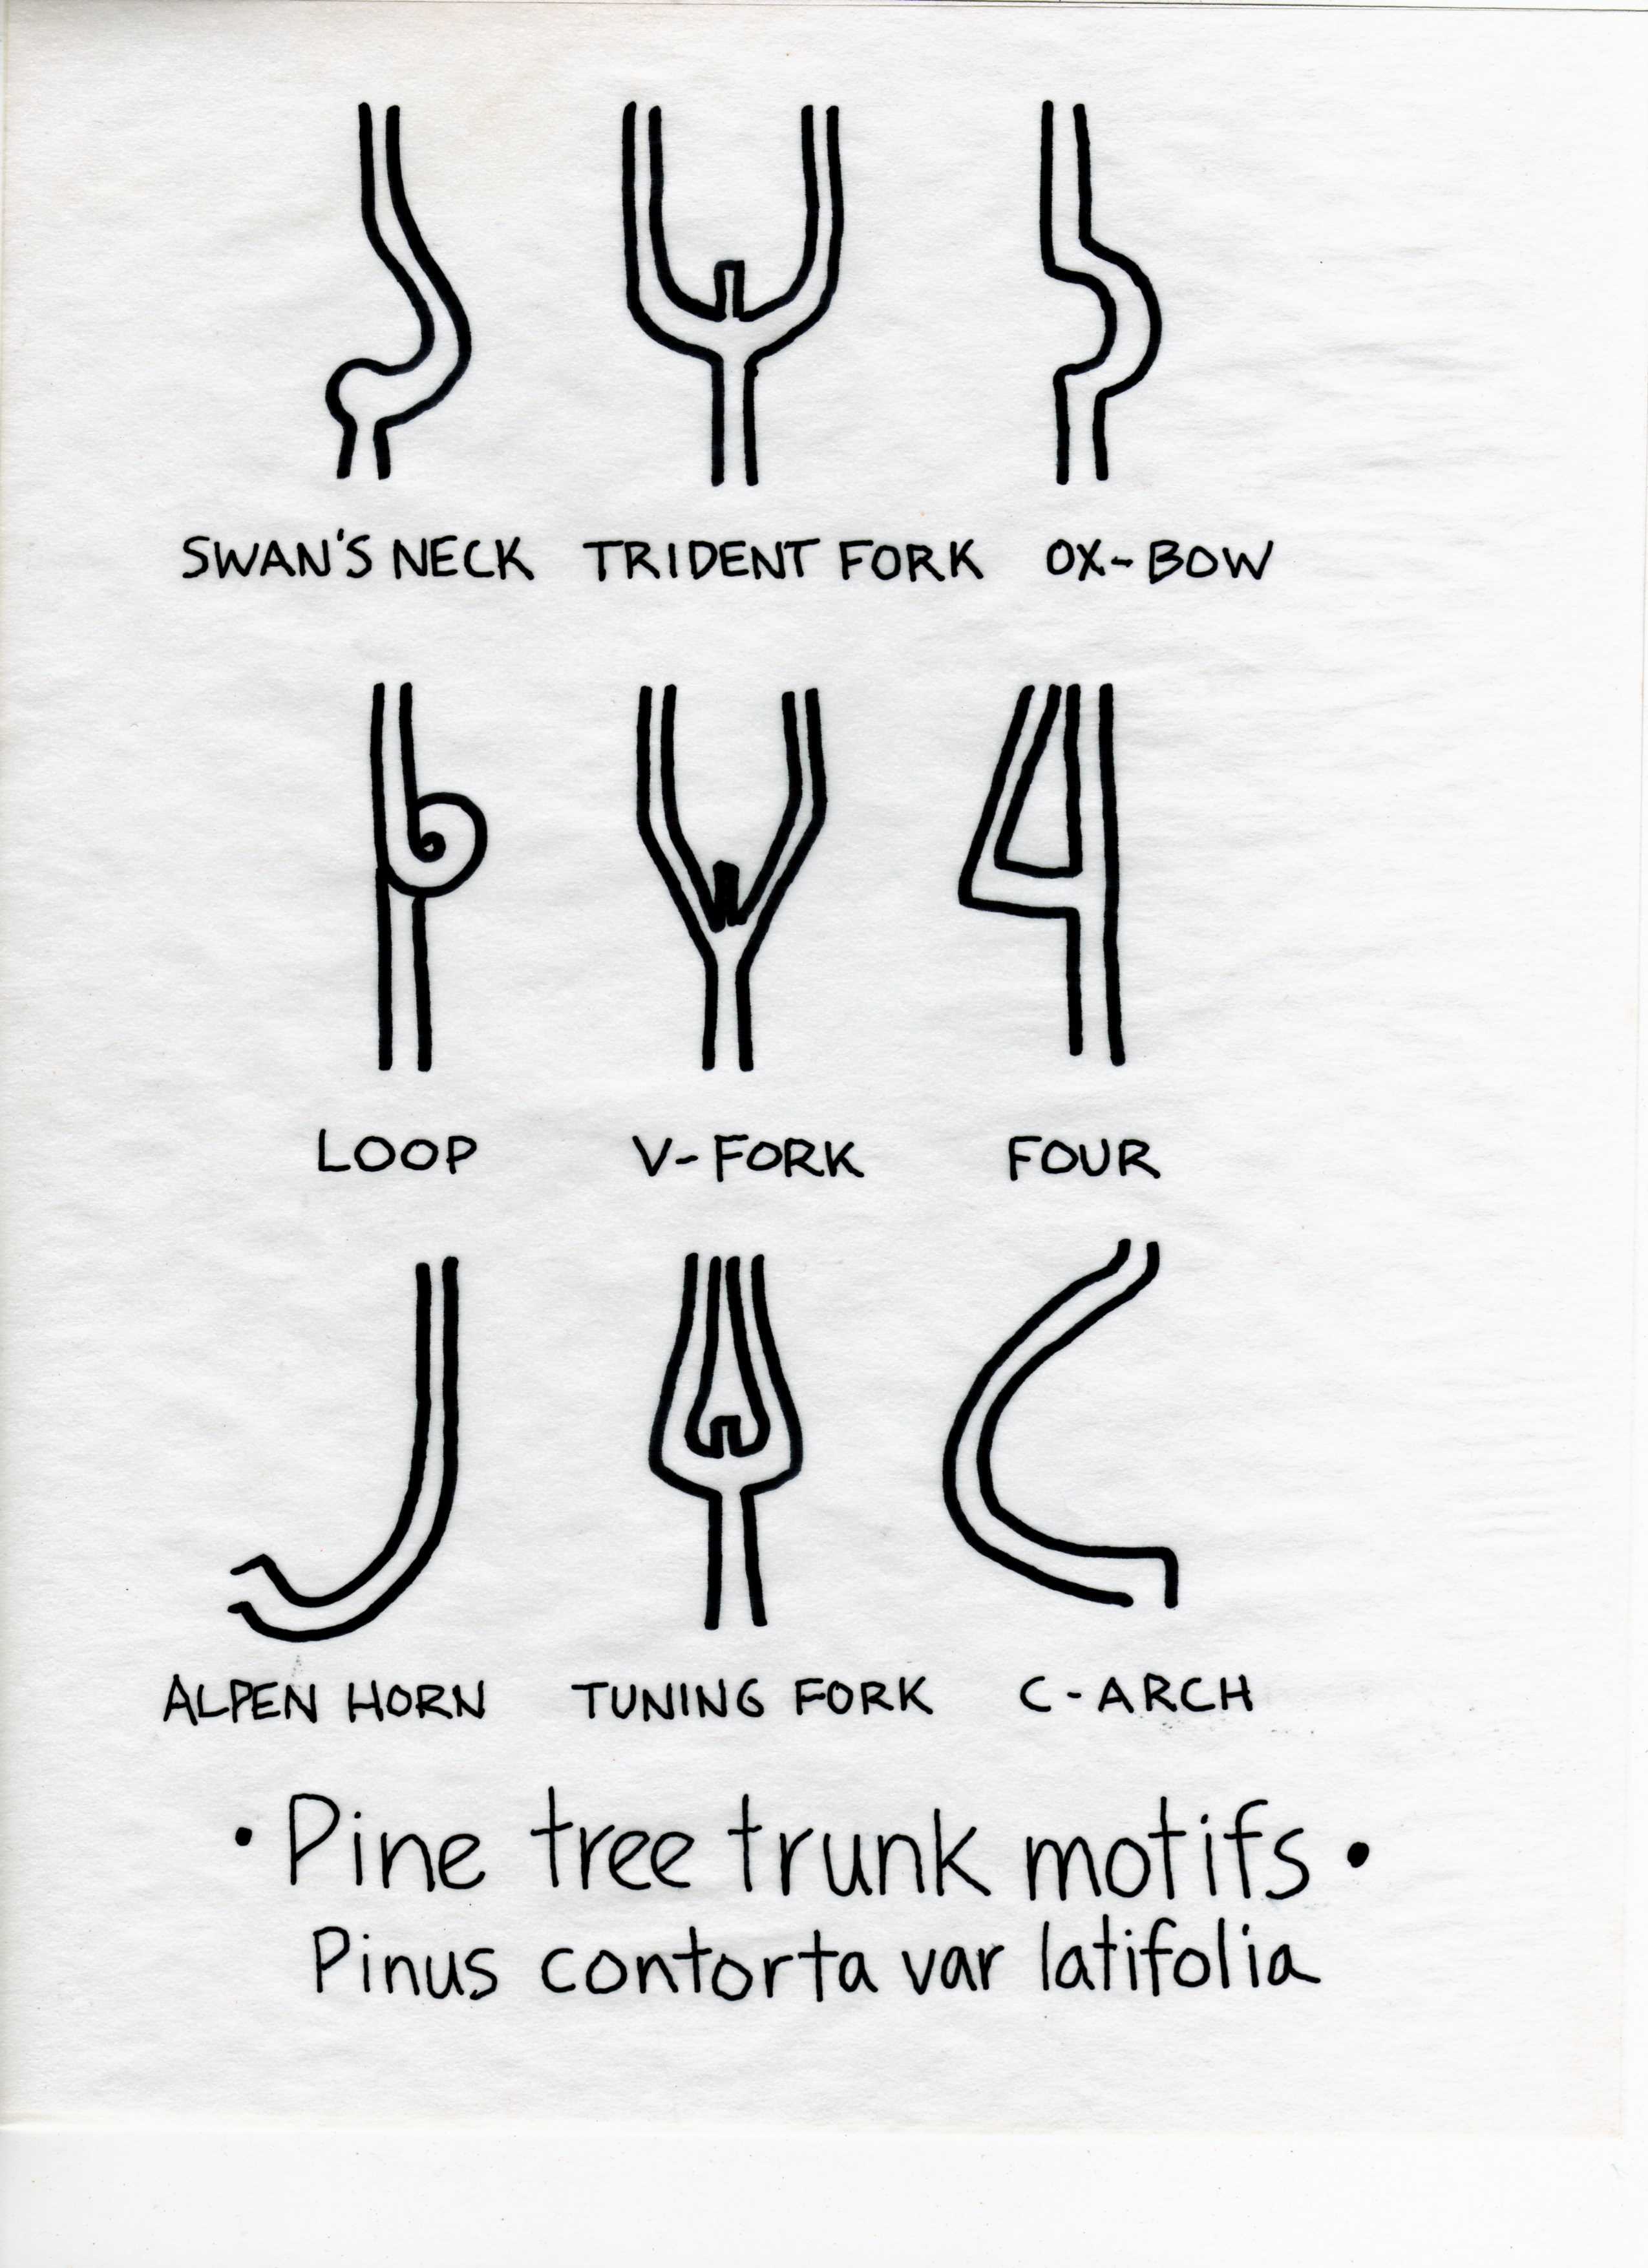 SWAN'S NECK TRIDENT FORK OX-BOW
LOOP V-FORK FOUR
ALPEN HORN TUNING FORK C-ARCH
• Pine tree trunk motifs •
Pinus contorta var latifolia